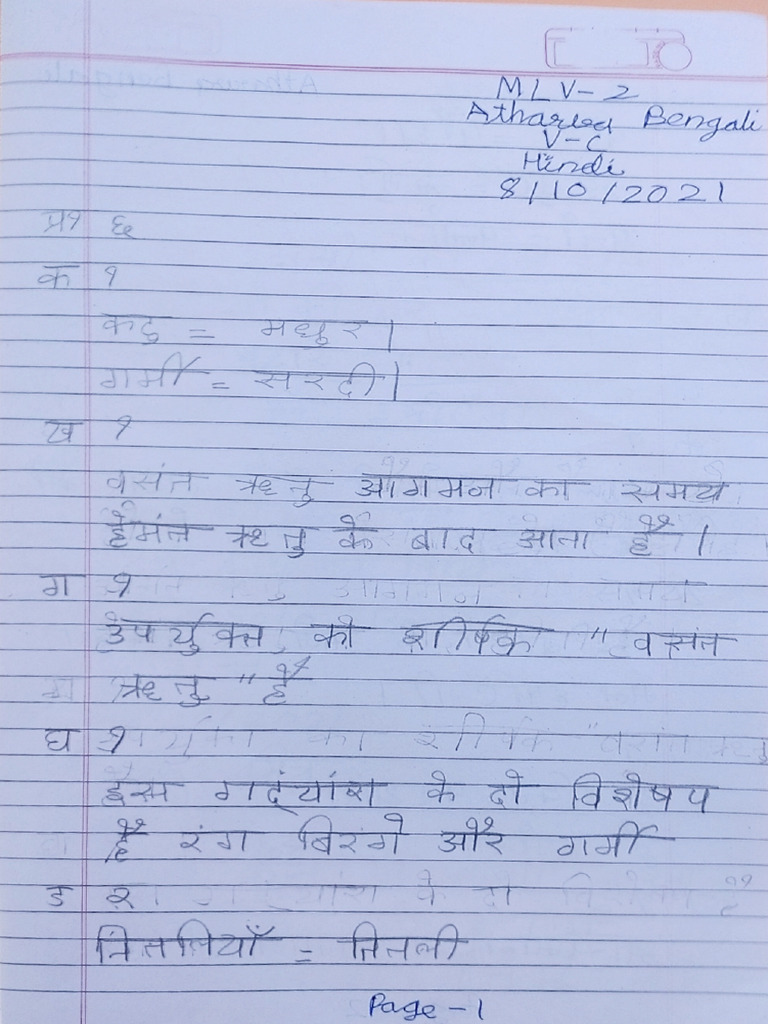 MLV-2
Atharva Bengali
V-C
Hindi
8/10/2021
प्र१ छ
क १
कटु = मधुर|
गर्मी = सरदी|
ख १
वसंत ऋतु आगमन का समय
हेमंत ऋतु के बाद आता है |
ग १
उपर्युक्त का शीर्षक "वसंत
ऋतु" है
घ १
इस गद्यांश के दो विशेषय
है रंग बिरंगे और गर्मी
ड २
तितलियाँ = तितली
Page-1